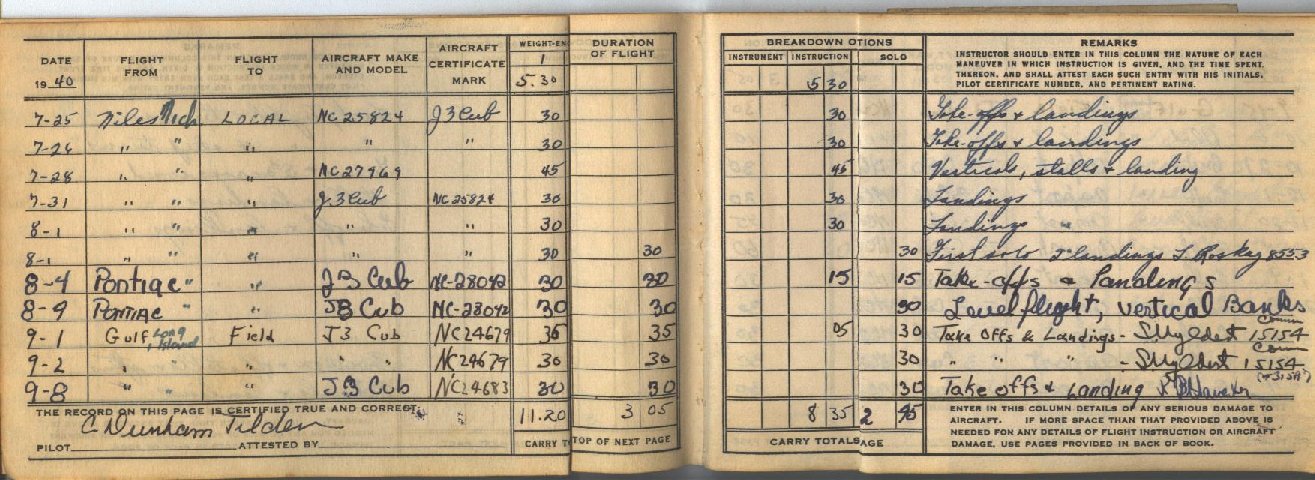 DATE 1940 FLIGHT FROM FLIGHT TO AIRCRAFT MAKE AND MODEL AIRCRAFT CERTIFICATE MARK WEIGHT-EN 1 5.30 DURATION OF FLIGHT BREAKDOWN OTIONS INSTRUMENT INSTRUCTION 5 30 SOLO REMARKS
INSTRUCTOR SHOULD ENTER IN THIS COLUMN THE NATURE OF EACH
MANEUVER IN WHICH INSTRUCTION IS GIVEN, AND THE TIME SPENT
THEREON, AND SHALL ATTEST EACH SUCH ENTRY WITH HIS INITIALS,
PILOT CERTIFICATE NUMBER, AND PERTINENT RATING.
7-25 Niles Mich LOCAL NC 25824 J3 Cub 30 30 Take-offs & landings
7-26 " " " " " 30 30 Take-offs & landings
7-28 " " " NC 27969 45 45 Verticals, stalls & landing
7-31 " " " J.3 Cub NC 25824 30 30 Landings
8-1 " " " " " 30 30 Landings "
8-1 " " " " " 30 30 30 First solo landings 8553
8-4 Pontiac " " J3 Cub NC-28042 30 30 15 15 Take-offs & Landings
8-9 Pontiac " " J3 Cub NC-28042 30 30 30 Level flight, vertical Banks
9-1 Gulf, Long Island Field J3 Cub NC24679 35 35 05 30 Take Offs & Landings - 15154
9-2 " " " " " NC24679 30 30 30 " " " - 15154
9-8 " " " J3 Cub NC24683 30 30 30 Take offs & Landing
THE RECORD ON THIS PAGE IS CERTIFIED TRUE AND CORRECT: 11.20 3 05 8 35 2 45
C Dunham Tilden
PILOT ATTESTED BY CARRY T TOP OF NEXT PAGE CARRY TOTALS AGE
ENTER IN THIS COLUMN DETAILS OF ANY SERIOUS DAMAGE TO
AIRCRAFT. IF MORE SPACE THAN THAT PROVIDED ABOVE IS
NEEDED FOR ANY DETAILS OF FLIGHT INSTRUCTION OR AIRCRAFT
DAMAGE, USE PAGES PROVIDED IN BACK OF BOOK.